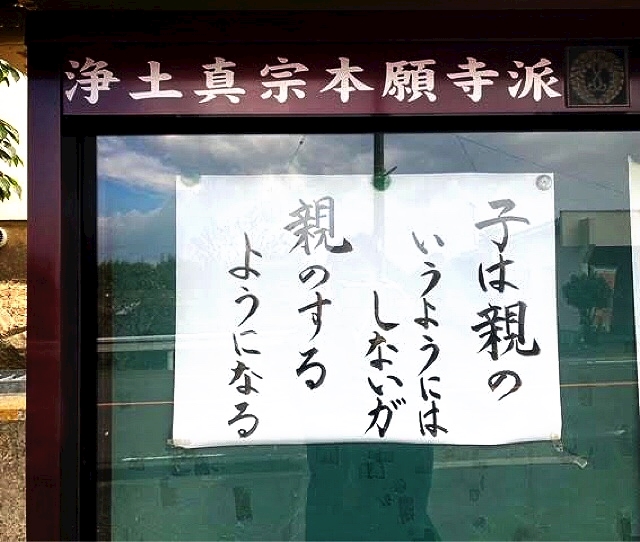 浄土真宗本願寺派
子は親の
いうようには
しないが
親のする
ようになる